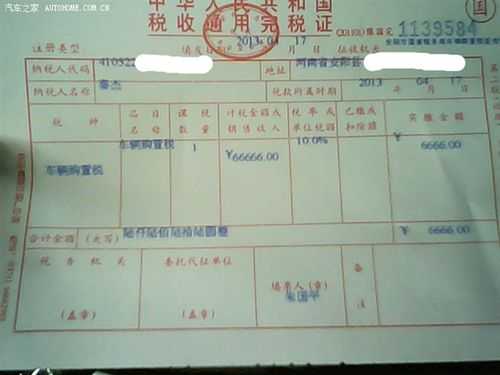 汽车之家 AUTOHOME.COM.CN
中华人民共和国
税收通用完税证
(20101)豫国完 1139584
注册类型 填发日期 2013 04 17 征收机关
纳税人代码 410322 地址 河南省安阳县
纳税人名称 秦杰 税款所属时期 2013 年 04 月 17 日
税种 品目名称 课税数量 计税金额或销售收入 税率或单位税额 已缴或扣除额 实缴金额
车辆购置税 车辆购置税 1 ¥66666.00 10.0% ¥ 6666.00
合计金额 (大写) 陆仟陆佰陆拾陆圆整 ¥ 6666.00
税务机关 委托代征单位 填票人(章) 备注
(盖章) (盖章)